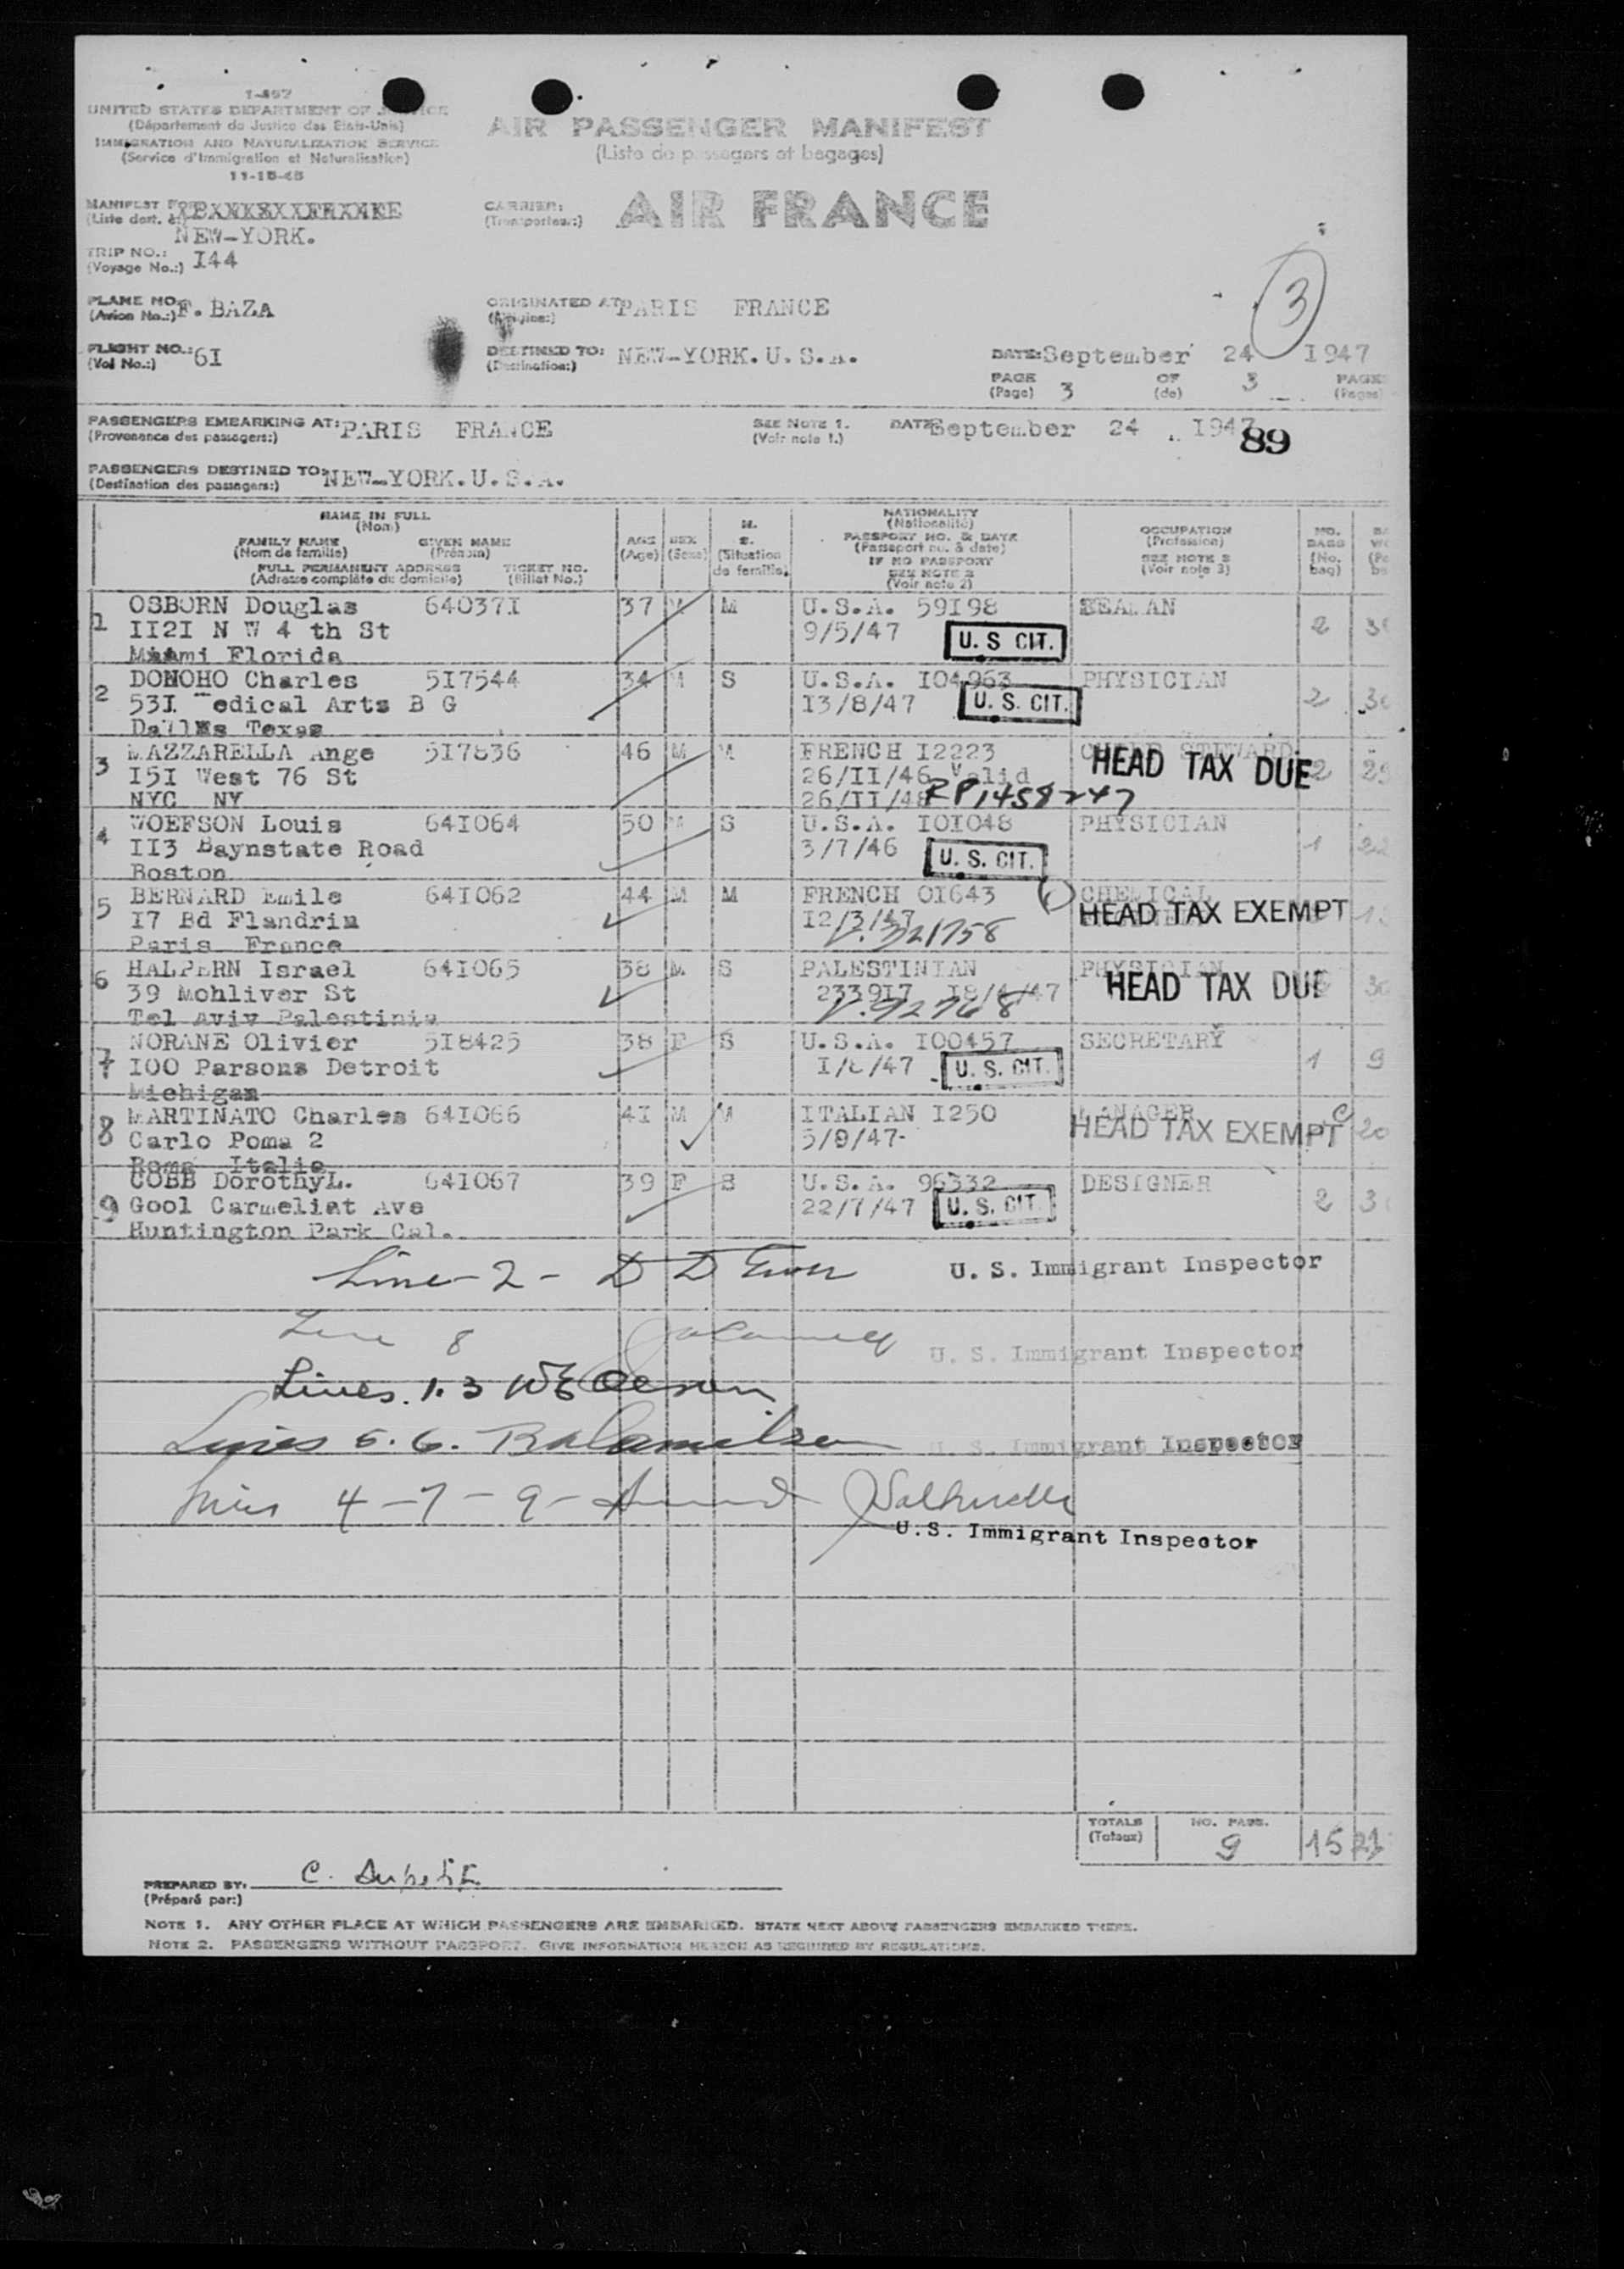 1-497
UNITED STATES DEPARTMENT OF JUSTICE
(Département de Justice des Etats-Unis)
IMMIGRATION AND NATURALIZATION SERVICE
(Service d'Immigration et Naturalisation)
11-15-45
AIR PASSENGER MANIFEST
(Liste de passagers et bagages)
MANIFEST FOR
(Liste dest. à:)
NEW-YORK.
CARRIER:
(Transporteur:)
AIR FRANCE
TRIP NO.: I44
(Voyage No.:)
3
PLANE NO. F. BAZA
(Avion No.:)
ORIGINATED AT PARIS FRANCE
(Origine:)
FLIGHT NO.: 6I
(Vol No.:)
DESTINED TO: NEW-YORK.U.S.A.
(Destination:)
DATE: September 24 I947
PAGE 3 OF 3 PAGES
(Page) (de) (Pages)
PASSENGERS EMBARKING AT: PARIS FRANCE
(Provenance des passagers:)
SEE NOTE 1.
(Voir note 1.)
DATE September 24 .. I947
89
PASSENGERS DESTINED TO: NEW-YORK.U.S.A.
(Destination des passagers:)
NAME IN FULL
(Nom)
FAMILY NAME GIVEN NAME
(Nom de famille) (Prénom)
FULL PERMANENT ADDRESS TICKET NO.
(Adresse complète du domicile) (Billet No.)
AGE
(Age)
SEX
(Sexe)
M.
S.
(Situation
de famille)
NATIONALITY
(Nationalité)
PASSPORT NO. & DATE
(Passeport nu. & date)
IF NO PASSPORT
SEE NOTE 2
(Voir note 2)
OCCUPATION
(Profession)
SEE NOTE 3
(Voir note 3)
NO.
BAGS
(No.
bag)
1 OSBORN Douglas 64037I 37 M M U.S.A. 59I98 SEAMAN 2
II2I N W 4 th St 9/5/47 U. S CIT.
Miami Florida
2 DONOHO Charles 5I7544 34 M S U.S.A. I04963 PHYSICIAN 2 30
53I edical Arts B G I3/8/47 U. S. CIT.
Dallas Texas
3 MAZZARELLA Ange 5I7836 46 M M FRENCH I2223 STEWARD 2
I5I West 76 St 26/II/46 Valid HEAD TAX DUE
NYC NY 26/II/48 RP1458247
4 WOEFSON Louis 64I064 50 M S U.S.A. I0I048 PHYSICIAN 1 22
II3 Baynstate Road 3/7/46 U. S. CIT.
Boston
5 BERNARD Emile 64I062 44 M M FRENCH 0I643 CHEMICAL
I7 Bd Flandrin I2/3/47 HEAD TAX EXEMPT
Paris France V. 321758
6 HALPERN Israel 64I065 38 M S PALESTINIAN PHYSICIAN
39 Mohliver St 2339I7 I8/4/47 HEAD TAX DUE
Tel Aviv Palestinia V. 92768
7 NORANE Olivier 5I8425 38 F S U.S.A. I00457 SECRETARY 1 9
I00 Parsons Detroit I/8/47 U. S. CIT.
Michigan
8 MARTINATO Charles 64I066 4I M M ITALIAN I250 MANAGER 20
Carlo Poma 2 5/9/47- HEAD TAX EXEMPT
Roma Italie
9 COBB DorothyL. 64I067 39 F S U.S.A. 96332 DESIGNER 2
Gool Carmeliat Ave 22/7/47 U. S. CIT.
Huntington Park Cal.
Line - 2 - U. S. Immigrant Inspector
Line 8 U. S. Immigrant Inspector
Lines. 1. 3
Lines 5. 6. U. S. Immigrant Inspector
Lines 4 - 7 - 9 -
U.S. Immigrant Inspector
TOTALS NO. PASS.
(Totaux) 9 15
PREPARED BY:
(Préparé par:)
NOTE 1. ANY OTHER PLACE AT WHICH PASSENGERS ARE EMBARKED. STATE NEXT ABOVE PASSENGERS EMBARKED THERE.
NOTE 2. PASSENGERS WITHOUT PASSPORT. GIVE INFORMATION HEREON AS REQUIRED BY REGULATIONS.